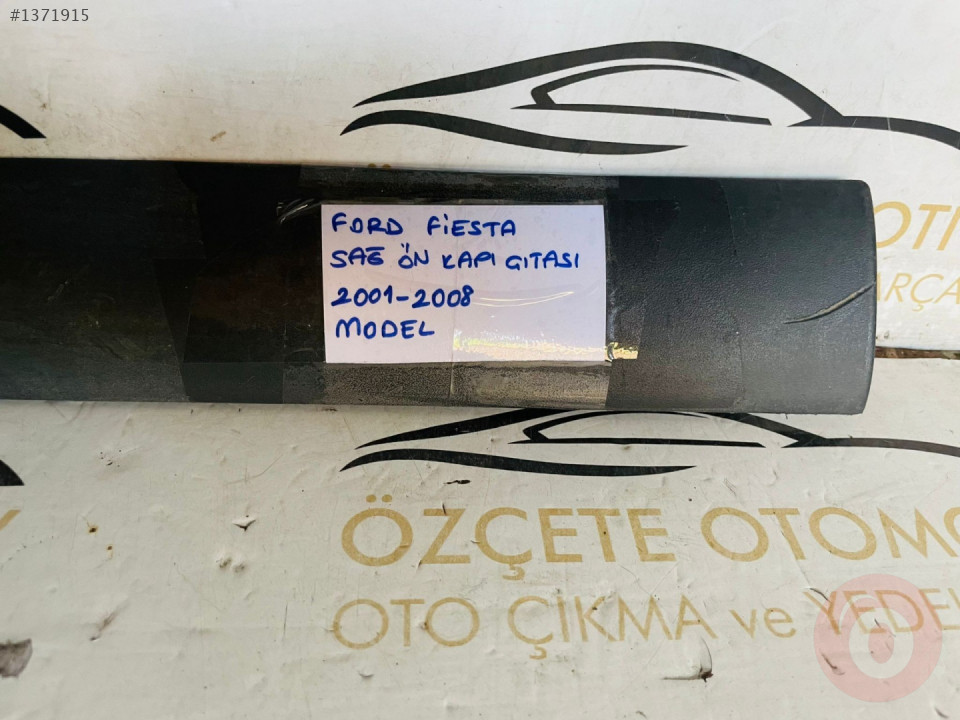 #1371915
FORD FİESTA
SAĞ ÖN KAPI GITASI
2001-2008
MODEL
OTO
ARÇA
ÖZÇETE OTOMO
OTO ÇIKMA ve YEDEK